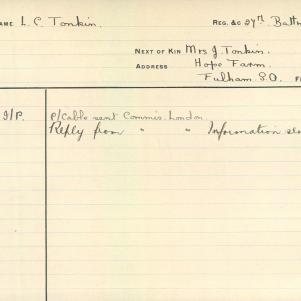 NAME L. C. Tonkin. REG. &C 27th. Battn
NEXT OF KIN Mrs J. Tonkin.
ADDRESS Hope Farm.
Fulham. S.O.
p/Cable sent Commis. London.
Reply from " " Information